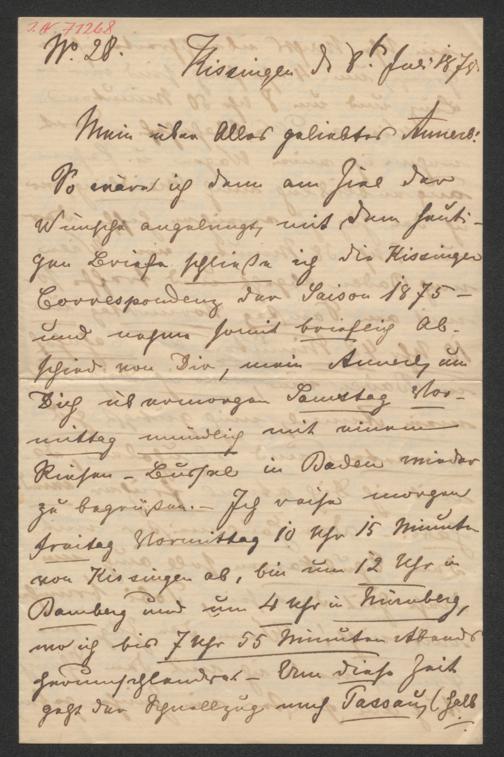 I.N. 71268
Nº. 28.
Kissingen d. 8t Juli 1875.
Mein über Alles geliebtes Annerl!
So wäre ich denn am Ziel der
Wünsche angelangt, mit dem heuti-
gen Briefe schließe ich die Kissinger
Correspondenz der Saison 1875 –
und nehme somit brieflich Ab-
schied von Dir, mein Annerl, um
Dich übermorgen Samstag Vor-
mittag mündlich mit einem
Riesen-Bussel in Baden wieder
zu begrüßen. – Ich reise morgen
Freitag Vormittag 10 Uhr 15 Minuten
von Kissingen ab, bin um 12 Uhr in
Bamberg und um 4 Uhr in Nürnberg,
wo ich bis 7 Uhr 55 Minuten Abends
herumschlendere – Um diese Zeit
geht der Schnellzug nach Passau, (halb